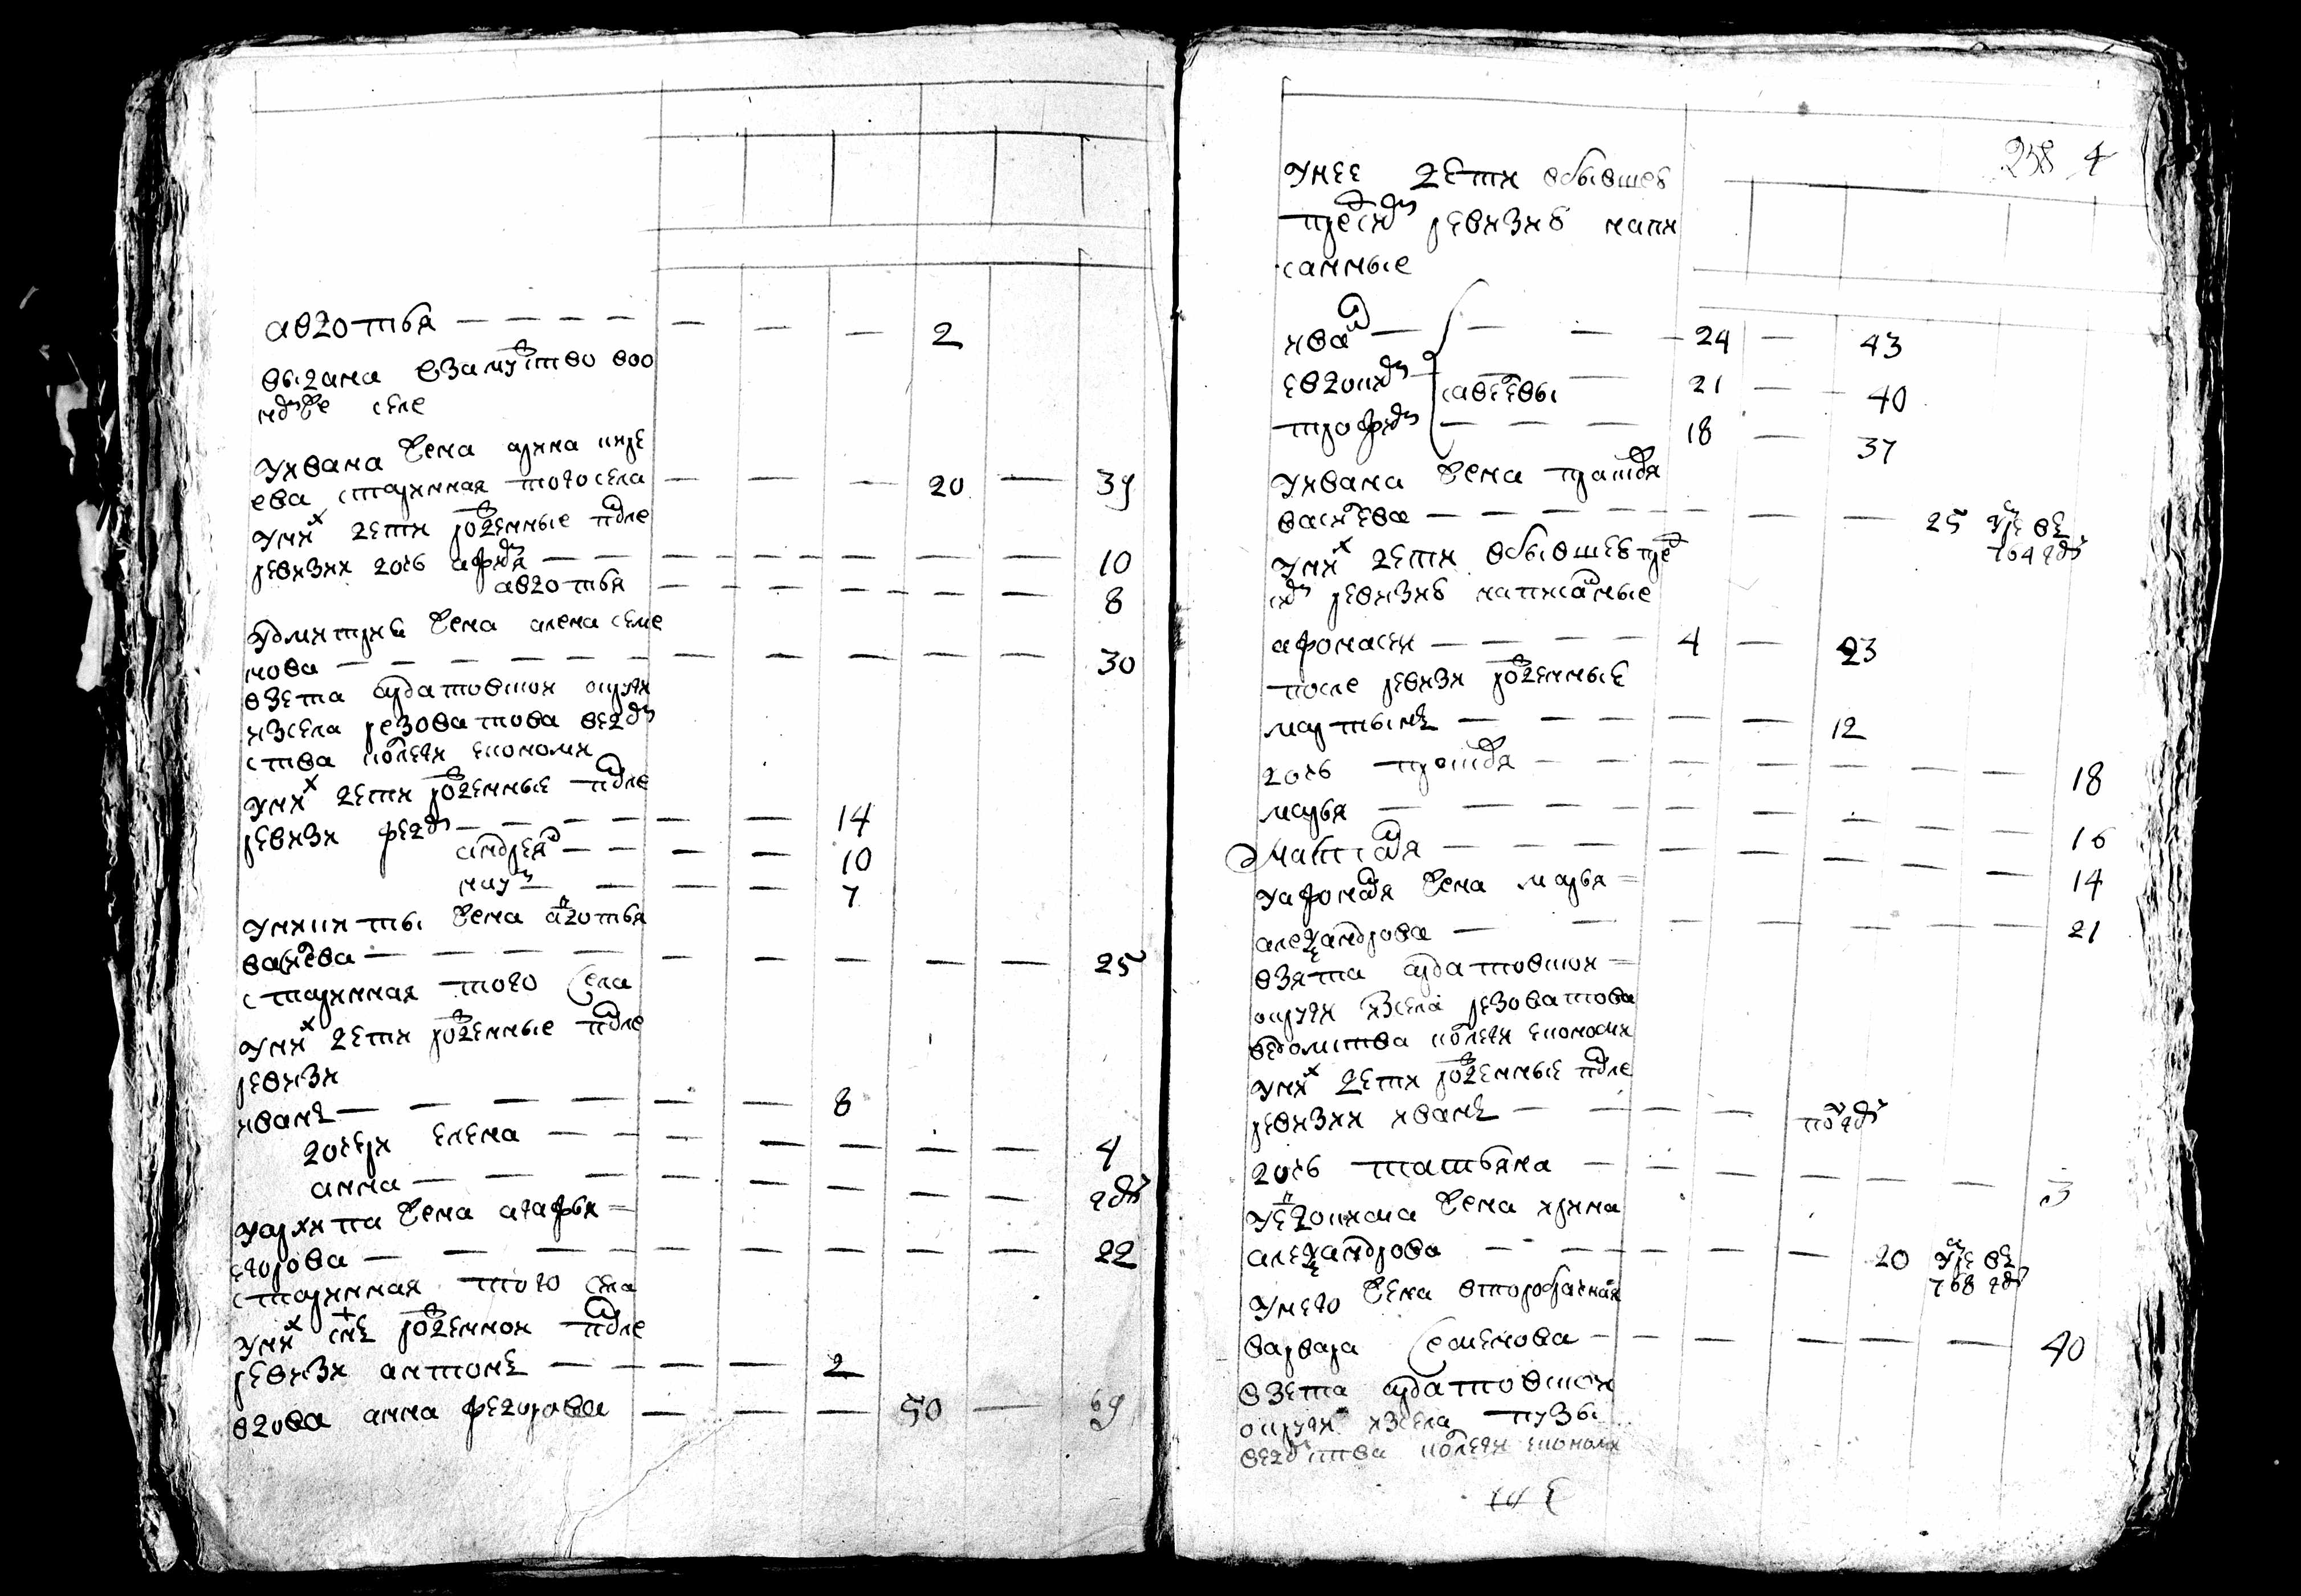 авдотья — — — — — — — 2
выдана взамужство воо
номже селе
уивана жена арина кире
ева старинная тогосела — — — 20 — 39
уних дети рожденные после
ревизии дочь афимя — — — — — — — — 10
авдотья — — — — — — — 8
удмитрия жена алена семе
нова — — — — — — — — — — 30
взета ардатовшой округи
изсела резоватова ведом
ства колегии економи
уних дети рожденные после
ревизи федор — — — — — 14
андреян — — — — 10
наум — — — — 7
уникиты жена авдотья
васильева — — — — — — — — — 25
старинная того села
уних дети рожденные после
ревизи
иванъ — — — — — — — 8
дочери елена — — — — — — — 4
анна — — — — — — — — годъ
уархипа жена агафья =
егорова — — — — — — — — — 22
старинная того села
уних сынъ рожденной после
ревизи антонъ — — — — 2
вдова анна федорова — — — 50 — 69
238 4
унее дети вбывшев
предсим ревизиь напи
санные
иван — — — 24 — 43
евдоким савеевы — 21 — 40
трофим — — — 18 — 37
уивана жена прасковя
васильева — — — — — — — 25 умре въ
764 годъ
уних дети вбывшевпре
сим ревизиь написаные
афонасеи — — — — 4 — 23
после ревизи рожденные
мартынъ — — — — — 12
дочь прасковя — — — — — — — 18
марья — — — — — — — 16
настася — — — — — — — 14
уафонася жена марья =
александрова — — — — — — — 21
взята ардатовшои =
округи изсела резоватова
ведомства колегии економи
уних дети рожденные после
ревизии иванъ — — — — полгоду
дочь татьяна — — — — — — 3
уевдокима жена ирина
александрова — — — — — 20 умре въ
768 годъ
унего жена второбрачная
варвара семенова — — — — — — 40
взета ардатовшои
округи изсела пузы
ведомства колегии економи